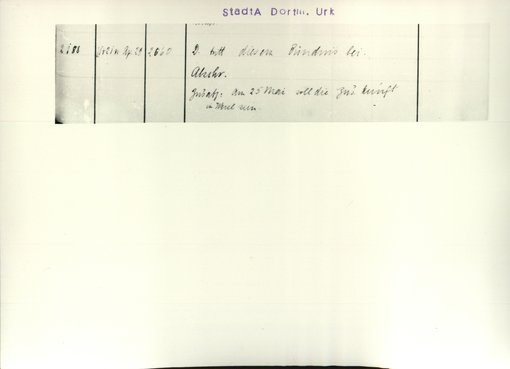 StadtA Dortm. Urk
2188 1521 Apr. 29 2660 D. tritt diesem Bündnis bei.
Abschr.
Zusatz: Am 25 Mai soll die Zus. kunft
in Werl sein